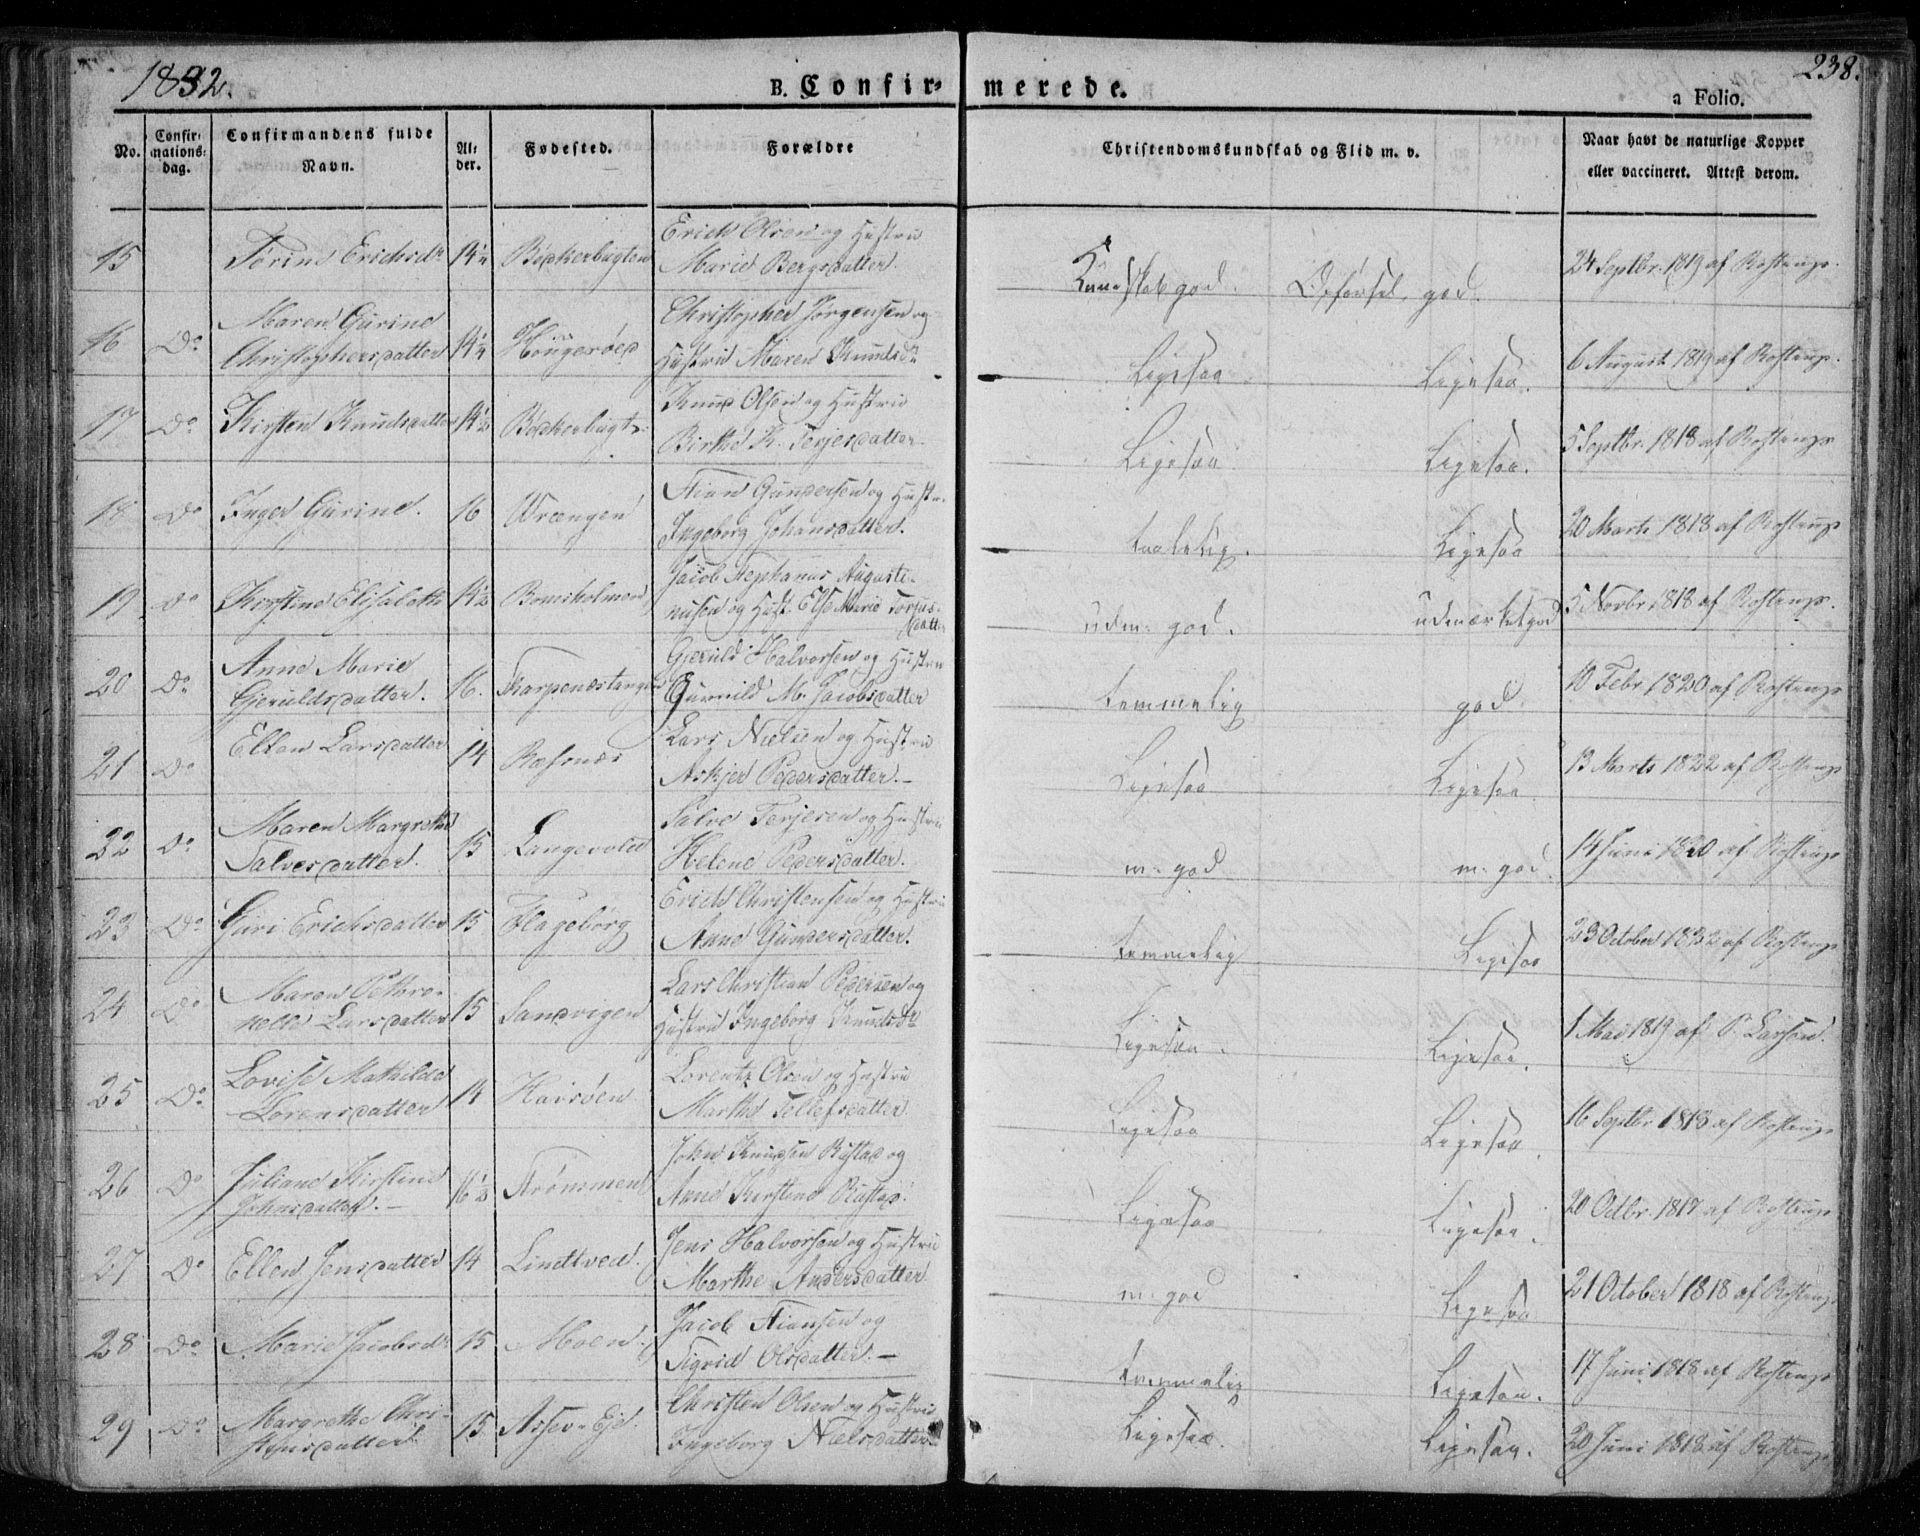 1832.
B. Confir-
merede.
238.
a Folio.
No.
Confir-
mations-
dag.
Confirmandens fulde
Navn.
Al-
der.
Fødested.
Forældre
Christendomskundskab og Flid m. v.
Naar havt de naturlige Kopper
eller vaccineret. Attest derom.
15 Torine Erichsdr 14¼ Bødkerbugten
Erich Olsen og Hustru
Marie Bergsdatter.
Kundskab god. Opførsel god.
24 Septbr. 1819 af Rostrup.
16 Do Maren Gurine
Christophersdatter 14¼ Hougerøed
Christopher Jørgensen og
Hustru Maren Knudsdr
Ligesaa Ligesaa.
6 August 1819 af Rostrup.
17 Do Kirsten Knudsdatter 14½ Bødkerbugt.
Knud Olsen og Hustru
Birthe K. Terjesdatter
Ligesaa Ligesaa.
5 Septbr. 1818 af Rostrup
18 Do Inger Gurine. 16 Wrængen
Stian Gundersen og Hustr.
Ingeborg Johansdatter.
taalelig. Ligesaa
20 Marts 1818 af Rostrup
19 Do Kirstine Elisabeth 14½ Bomsholmen
Jacob Stephanus Augusti-
nusen og Hust. Else Marie Torjus-
datter
udm. god. udmærket god
5 Novbr 1818 af Rostrup.
20 Do Anne Marie
Gjeruldsdatter. 16. Skarpenæstangen
Gjeruld Halvorsen og Hustru
Gunnild M. Jacobsdatter
temmelig god.
10 Febr 1820 af Rostrup
21 Do Ellen Larsdatter 14 Ræsnæs
Lars Nielsen og Hustru
Askjer Pedersdatter.
Ligesaa Ligesaa
13 Marts 1822 af Rostrup
22 Do Maren Margrethe
Salvesdatter. 15 Langevold
Salve Terjesen og Hustru
Helene Pedersdatter.
m. god m. god.
14 Juni 1820 af Rostrup
23 Do Guri Erichsdatter 15 Hageborg
Erich Christensen og Hustru
Anne Gundersdatter.
temmelig Ligesaa
23 October 1832 af Rostrup
24 Do Maren Pethro-
nelle Larsdatter 15 Sandvigen
Lars Christian Pedersen og
Hustru Ingeborg Knudsdr
Ligesaa. Ligesaa.
1 Mai 1819 af P. Larsen.
25 Do Lovise Mathilde
Lorensdatter 14 Havsøen
Lorentz Olsen og Hustru
Marthe Tellefsdatter.
Ligesaa Ligesaa.
16 Septbr 1818 af Rostrup
26 Do Juliane Kirstine
Johnsdatter. 16½ Strømmen
John Knudsen Rystad og
Anne Kirstine
Ligesaa Ligesaa.
20 Octbr. 1817 af Rostrup
27 Do Ellen Jensdatter 14 Lindtved.
Jens Halvorsen og Hustru
Marthe Andersdatter
m. god Ligesaa
21 October 1818 af Rostrup
28 Do Marie Jacobsdr 15 Moen.
Jacob Stiansen og
Sigrid Olsdatter.
temmelig Ligesaa.
17 Juni 1818 af Rostrup
29 Do Margrethe Chri-
stensdatter 15. Assev-Eje.
Christen Olsen og Hustru
Ingeborg Nielsdatter
Ligesaa. Ligesaa.
20 Juni 1818 af Rostrup